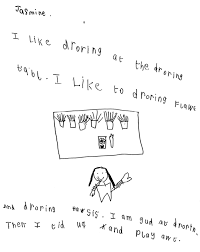 Jasmine.
I like droring at the droring
tabl. I Like to droring flawr
and droring pepsis. I am gud at droring.
Then I tid up and play awt.